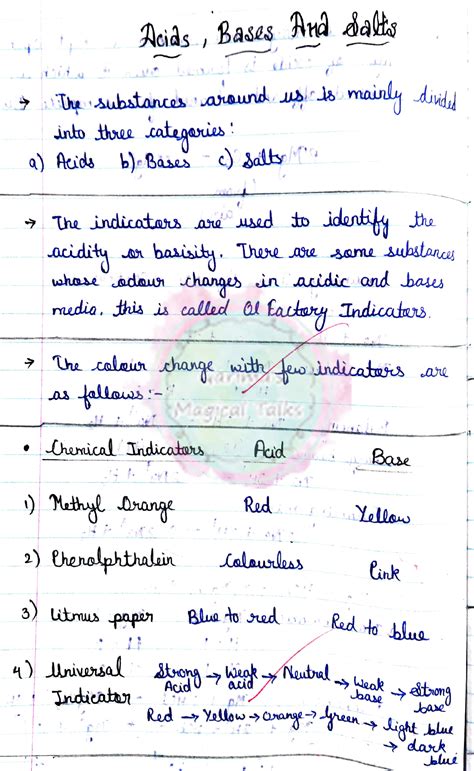 Acids, Bases And Salts
→ The substances around us is mainly divided
into three categories:
a) Acids b) Bases c) Salts
→ The indicators are used to identify the
acidity or basisity. There are some substances
whose odour changes in acidic and bases
media, this is called Ol Factory Indicators.
→ The colour change with few indicators are
as follows:-
Magical Talks
• Chemical Indicators Acid Base
1) Methyl Orange Red Yellow
2) Phenolphthalein Colourless Pink
3) Litmus paper Blue to red Red to blue
4) Universal Indicator
Strong Acid → Weak acid → Neutral → Weak base → Strong base
Red → Yellow → Orange → Green → light blue
→ dark blue